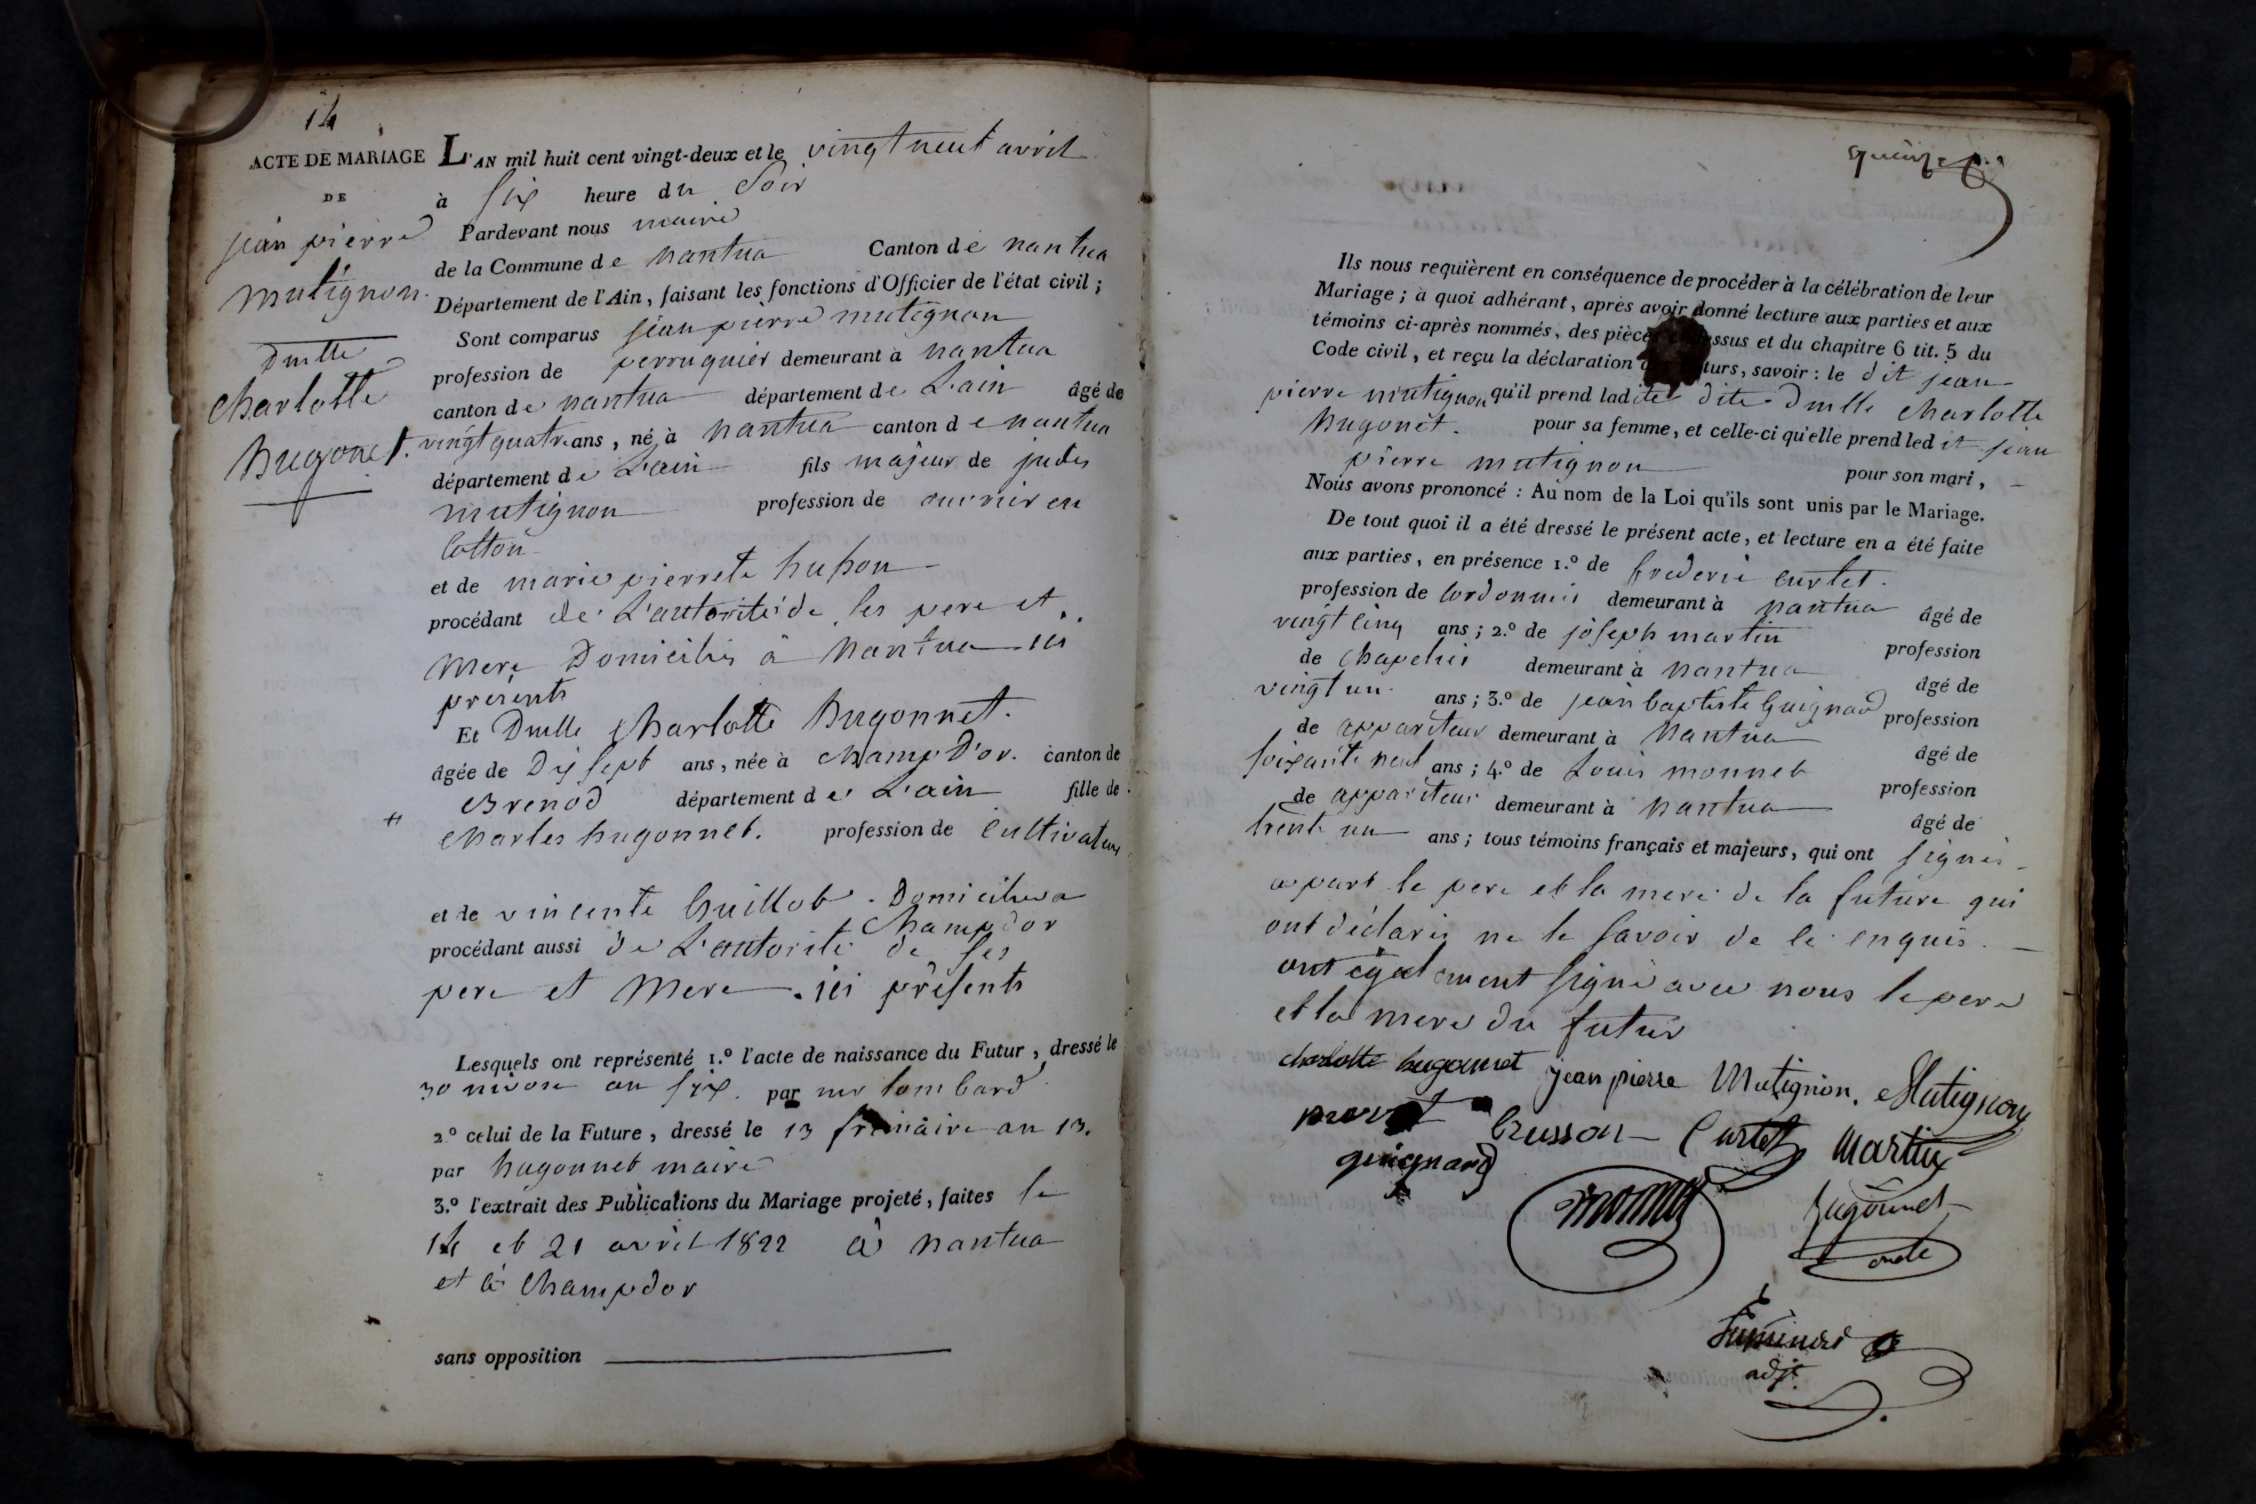 14
ACTE DE MARIAGE
DE
jean pierre
mutignon
Dmlle
charlotte
hugonet.
L'AN mil huit cent vingt-deux et le vingt neuf avril
à six heure du soir
Pardevant nous maire
de la Commune de nantua Canton de nantua
Département de l'Ain, faisant les fonctions d'Officier de l'état civil ;
Sont comparus jean pierre mutignon
profession de perruquier demeurant à nantua
canton de nantua département de L'ain âgé de
vingt quatre ans, né à nantua canton de nantua
département de L'ain fils majeur de judes
mutignon profession de ouvrier en
Cotton
et de marie pierrete
procédant de L'autorité de ses pere et
mere Domiciliés à nantua ici
présents
Et Dmlle Charlotte hugonnet.
âgée de Dix sept ans, née à champ D'or. canton de
Brenod département de L'ain fille de
Charles hugonnet. profession de cultivateur
et de vincente Guillot. Domiciliés a
Champdor
procédant aussi de L'autorité de ses
pere et mere. ici présents
Lesquels ont représenté 1.º l'acte de naissance du Futur, dressé le
30 nivose an six. par mr lombard
2.º celui de la Future, dressé le 13 frimaire an 13.
par hugonnet maire
3.º l'extrait des Publications du Mariage projeté, faites le
14 et 21 avril 1822 à nantua
et à Champdor
sans opposition
quinze
Ils nous requièrent en conséquence de procéder à la célébration de leur
Mariage ; à quoi adhérant, après avoir donné lecture aux parties et aux
témoins ci-après nommés, des pièces ci-dessus et du chapitre 6 tit. 5 du
Code civil, et reçu la déclaration turs, savoir : le dit jean
pierre mutignon qu'il prend ladite dite Dmlle charlotte
hugonet. pour sa femme, et celle-ci qu'elle prend ledit jean
pierre mutignon pour son mari,
Nous avons prononcé : Au nom de la Loi qu'ils sont unis par le Mariage.
De tout quoi il a été dressé le présent acte, et lecture en a été faite
aux parties, en présence 1.º de frederic curtet.
profession de cordonnier demeurant à nantua âgé de
vingt cinq ans ; 2.º de joseph martin profession
de chapelier demeurant à nantua âgé de
vingt un ans ; 3.º de jean baptiste Guignard profession
de appariteur demeurant à nantua âgé de
soixante neuf ans ; 4.º de Louis monnet profession
de appariteur demeurant à nantua âgé de
trente un ans ; tous témoins français et majeurs, qui ont signés
a part le pere et la mere de la future qui
ont déclarés ne le savoir de ce enquis.
ont également signé avec nous le pere
et la mere du futur
charlotte hugonnet jean pierre Mutignon. Mutignon
Curtet Martin
guignard
monnet hugonnet
oncle
adjt.